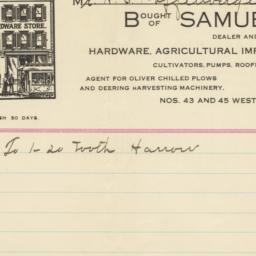 Mr.
BOUGHT OF SAMUE
DEALER AND
HARDWARE, AGRICULTURAL IMP
CULTIVATORS, PUMPS, ROOF
AGENT FOR OLIVER CHILLED PLOWS
AND DEERING HARVESTING MACHINERY.
NOS. 43 AND 45 WEST
RDWARE STORE.
SH 30 DAYS.
To 1-20 Tooth Harrow